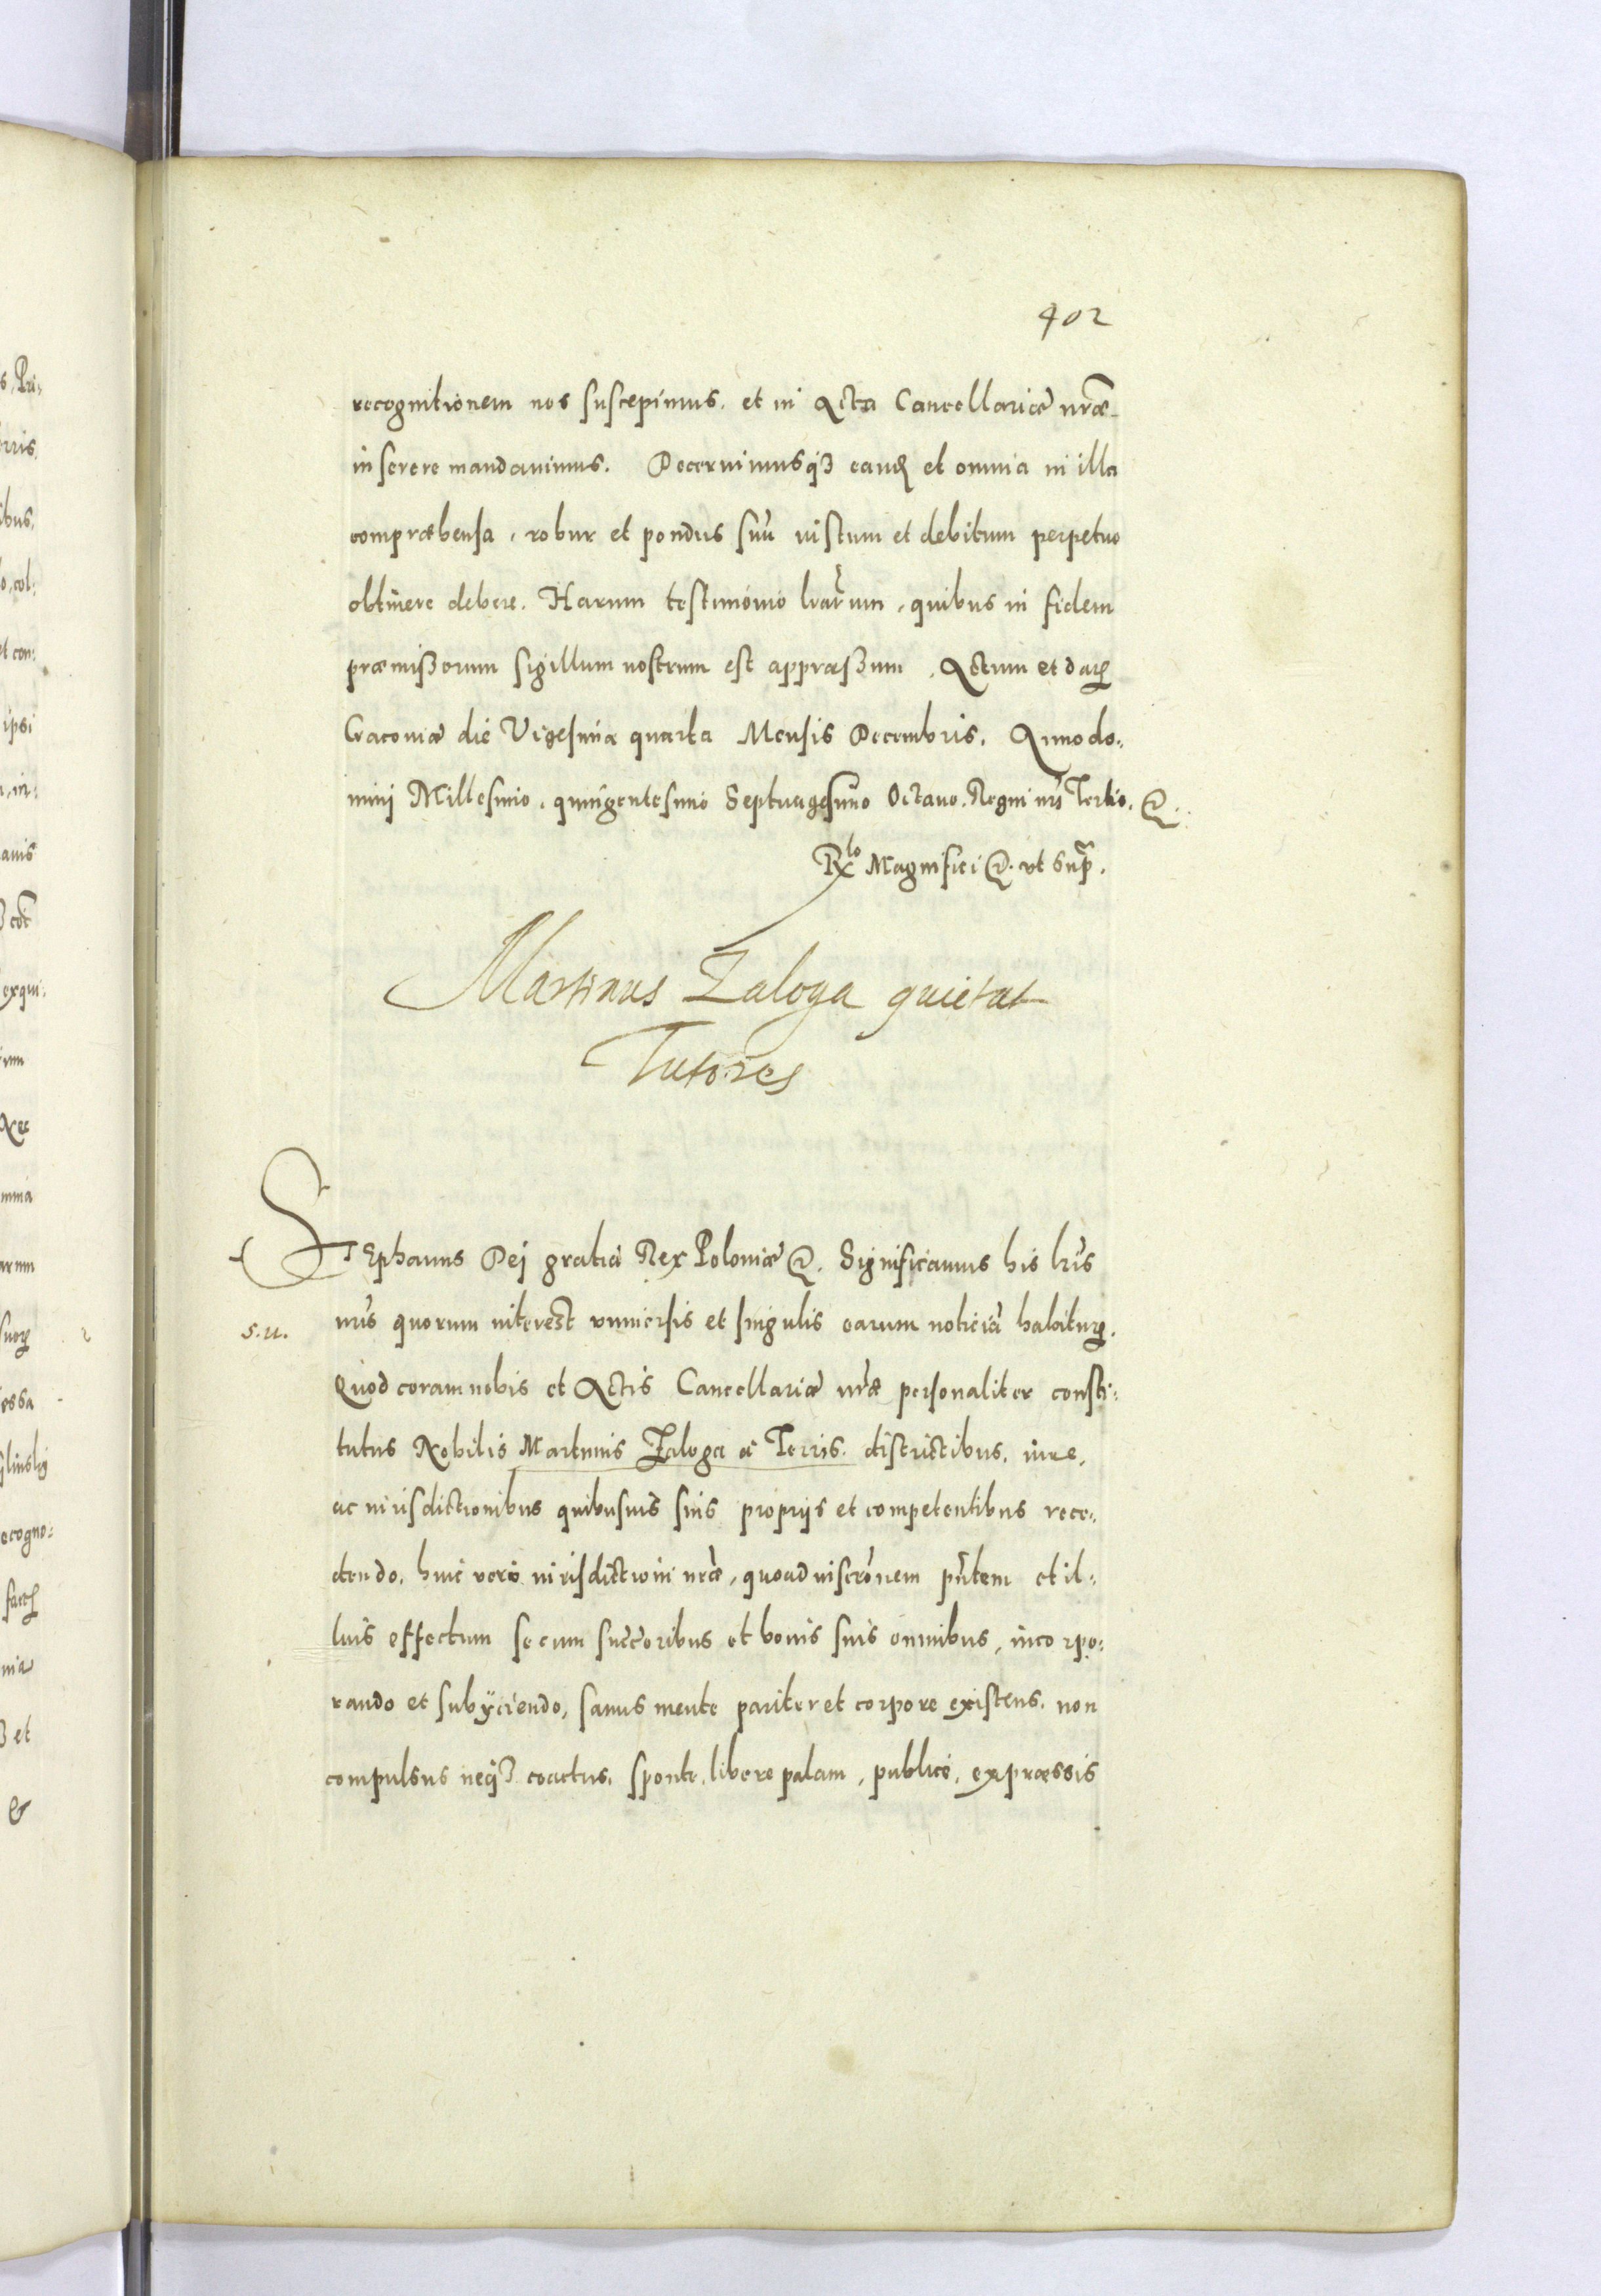 402
recognitionem nos suscepimus. et in Acta Cancellariæ nr̃æ
inserere mandavimus. Decernimusq3 eand et omnia in illa
compræhensa, robur et pondus suũ iustum et debitum perpetuo
obtinere debere. Harum testimonio lr̃arum, quibus in fidem
præmißorum sigillum nostrum est appræßum. Actum et datꝝ
Cracoviæ die Vigesima quarta Mensis Decembris. Anno do:
minj Millesimo, quingentesimo Septuagesimo Octauo. Regni nr̃i Tertio. &.
Rlo Magnifici &. vt supr̃.
Martinus Zaloga quietat
Tutores
STephanus Dej gratia Rex Poloniæ &. Significamus his lr̃is
s. u.
nr̃is quorum interest vniuersis et singulis earum noticiã habiturꝝ.
Quod coram nobis et Actis Cancellariæ nr̃æ personaliter consti:
tutus Nobilis Martinus Zaloga à Terris. districtibus. iure,
ac iurisdictionibus quibusuis suis proprijs et competentibus rece:
dendo. huic vero iurisdictioni nr̃æ, quoad inscr̃onem pñtem et il:
lius effectum se cum succ̃oribus et bonis suis omnibus, incorpo:
rando et subÿciendo, sanus mente pariter et corpore existens. non
compulsus neq3 coactus. sponte, libere palam, publicè, expræssis
s, Pri:
rris,
ibus,
o, col:
et con:
ipsi
auis
exqui:
essa
linsky
ecogno:
nia
3 et
&